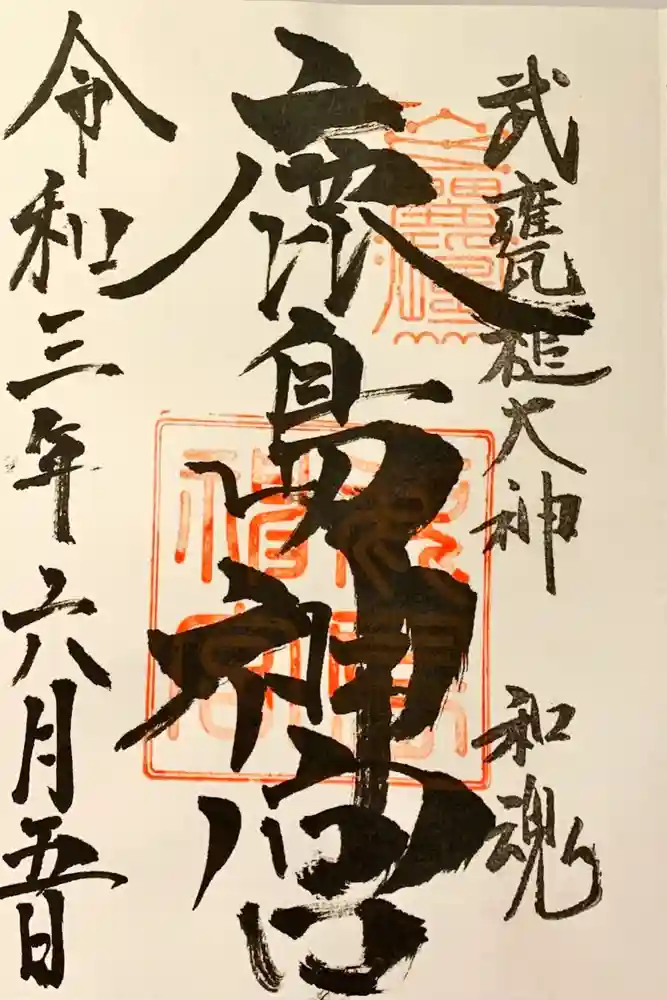 武甕槌大神 和魂
鹿島神宮
令和三年六月五日